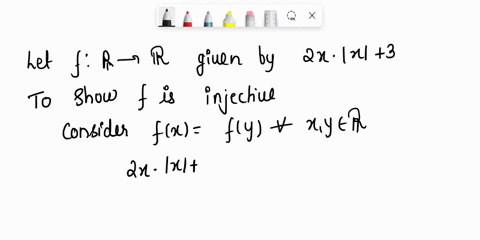 Let f: ℝ → ℝ given by 2x·|x|+3
To show f is injective
Consider f(x) = f(y) ∀ x,y ∈ ℝ
2x·|x|+